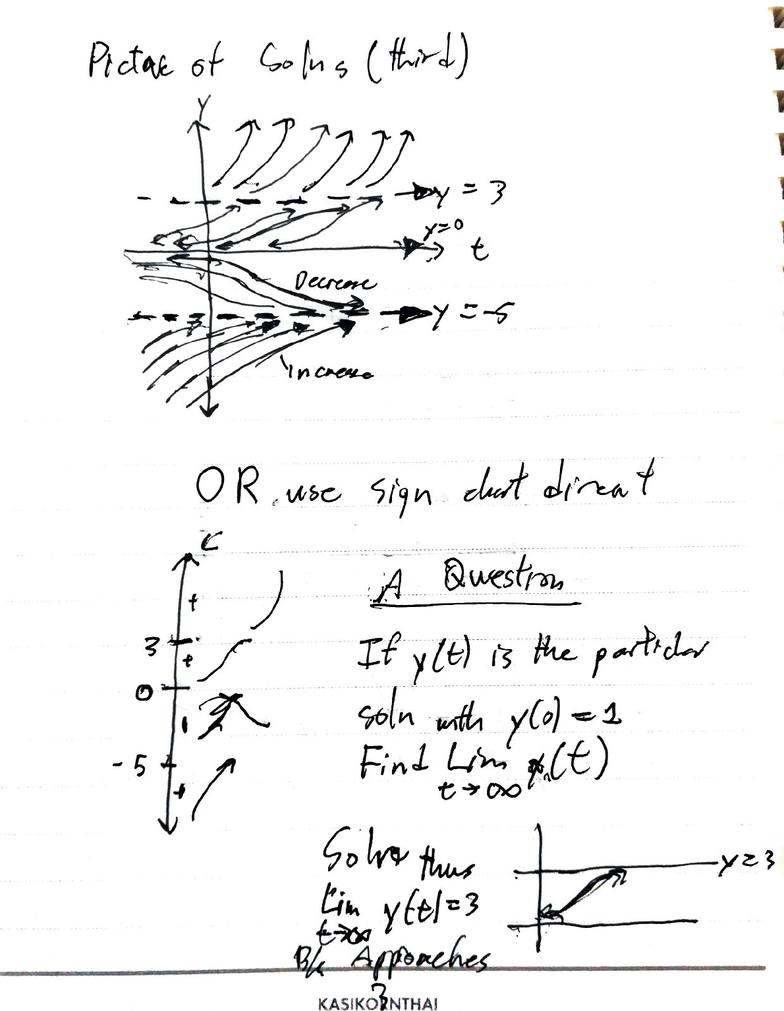 Picture of Solns (third)
y
y = 3
y=0
t
Decrease
y = -5
Increase
OR use sign chart direct
+
3
+
0
- 5
+
A Question
If y(t) is the particular
soln with y(0) = 1
Find Lim y(t)
t→∞
Solve thus
y=3
Lim y(t)=3
t→∞
B/c Approaches
3
KASIKORNTHAI